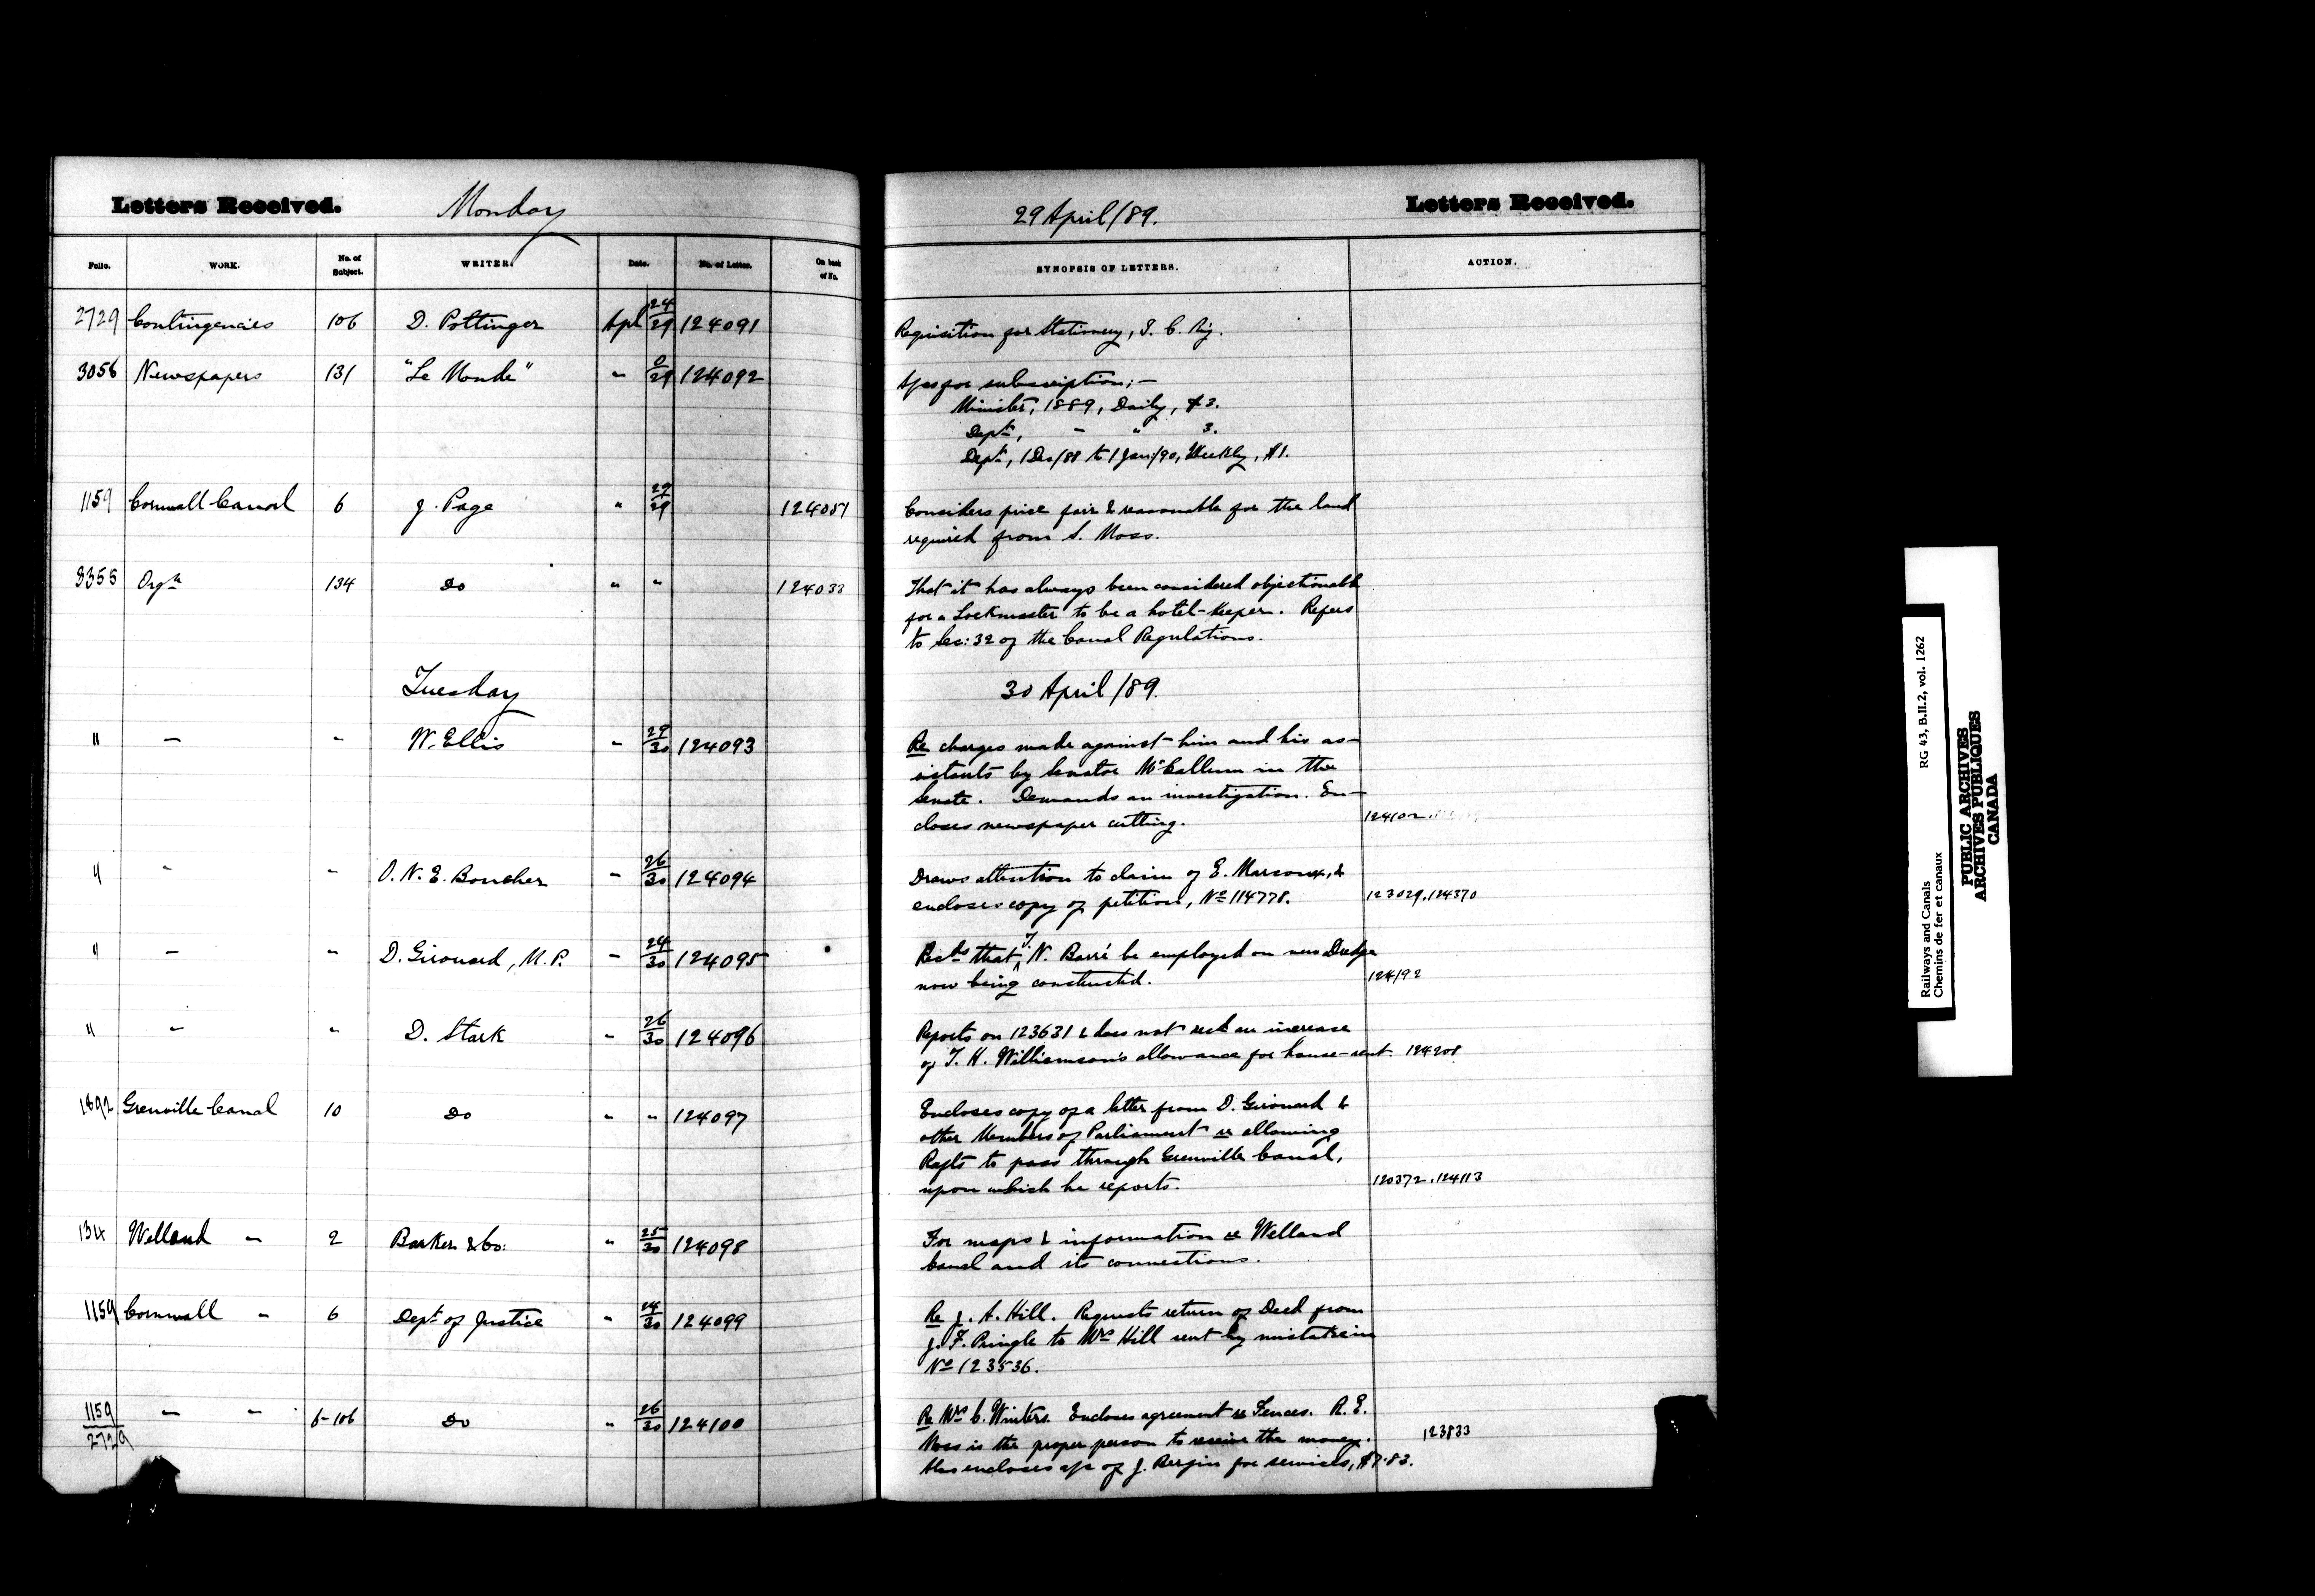 Letters Received. Monday 29 April/89. Letters Received.
Folio. WORK. No. of Subject. WRITER. Date. No. of Letter. On back of No. SYNOPSIS OF LETTERS. ACTION.
2729 Contingencies 106 D. Pottinger Apl 24/29 124091 Requisition for Stationery, I. C. Ry.
3056 Newspapers 131 "Le Monde" " 0/29 124092 A/cs for subscription;—
Minister, 1889, Daily, $3.
Dept, " " 3.
Dept, 1 Dec/88 to 1 Jan/90, Weekly, $1.
1159 Cornwall Canal 6 J. Page " 29/29 124057 Considers price fair & reasonable for the land
required from S. Moss.
3355 Orgn 134 Do " " 124033 That it has always been considered objectionable
for a Lockmaster to be a hotel-keeper. Refers
to Sec: 32 of the Canal Regulations.
Tuesday 30 April/89.
" " " W. Ellis " 29/30 124093 Re charges made against him and his as-
sistants by Senator McCallum in the
Senate. Demands an investigation. En-
closes newspaper cutting. 124102
" " " O. N. E. Boucher " 26/30 124094 Draws attention to claim of E. Marcoux, &
encloses copy of petition, No 114778. 123029, 124370
" " " D. Girouard, M.P. " 24/30 124095 Recds that J. N. Barré be employed on new Dredge
now being constructed. 124192
" " " D. Stark " 26/30 124096 Reports on 123631 & does not recd an increase
of T. H. Williamson's allowance for house-rent. 124208
1892 Grenville Canal 10 Do " " 124097 Encloses copy of a letter from D. Girouard &
other Members of Parliament re allowing
Rafts to pass through Grenville Canal,
upon which he reports. 120372, 124113
134 Welland " 2 Barker & Co: " 25/30 124098 For maps & information re Welland
Canal and its connections.
1159 Cornwall " 6 Dept of Justice " 24/30 124099 Re J. A. Hill. Requests return of Deed from
J. F. Pringle to Mrs Hill sent by mistake in
No 123536.
1159/2729 " " 6-106 Do " 26/30 124100 Re Mrs C. Winters. Encloses agreement re Fences. R. E.
Moss is the proper person to receive the money.
Also encloses a/c of J. Bergin for services, $7.83. 123833
Railways and Canals RG 43, B.II.2, vol. 1262
Chemins de fer et canaux
PUBLIC ARCHIVES
ARCHIVES PUBLIQUES
CANADA